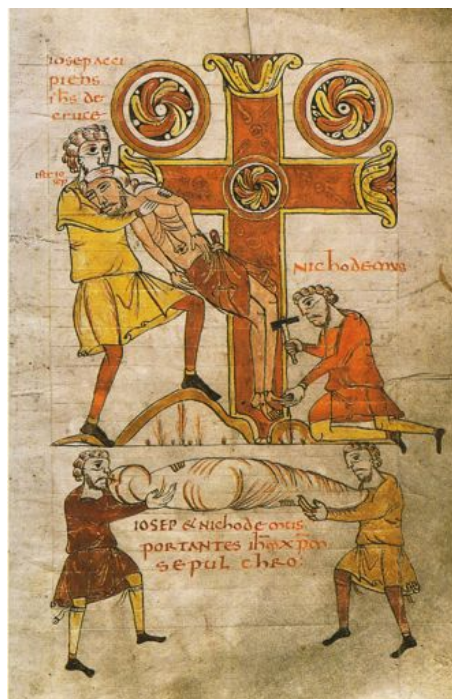 IOSEP ACCI
PIENS
IħS DE
CRUCE
NICHODEMUS
IOSEP & NICHODEMUS
PORTANTES IħM XPM
SEPULCHRO: